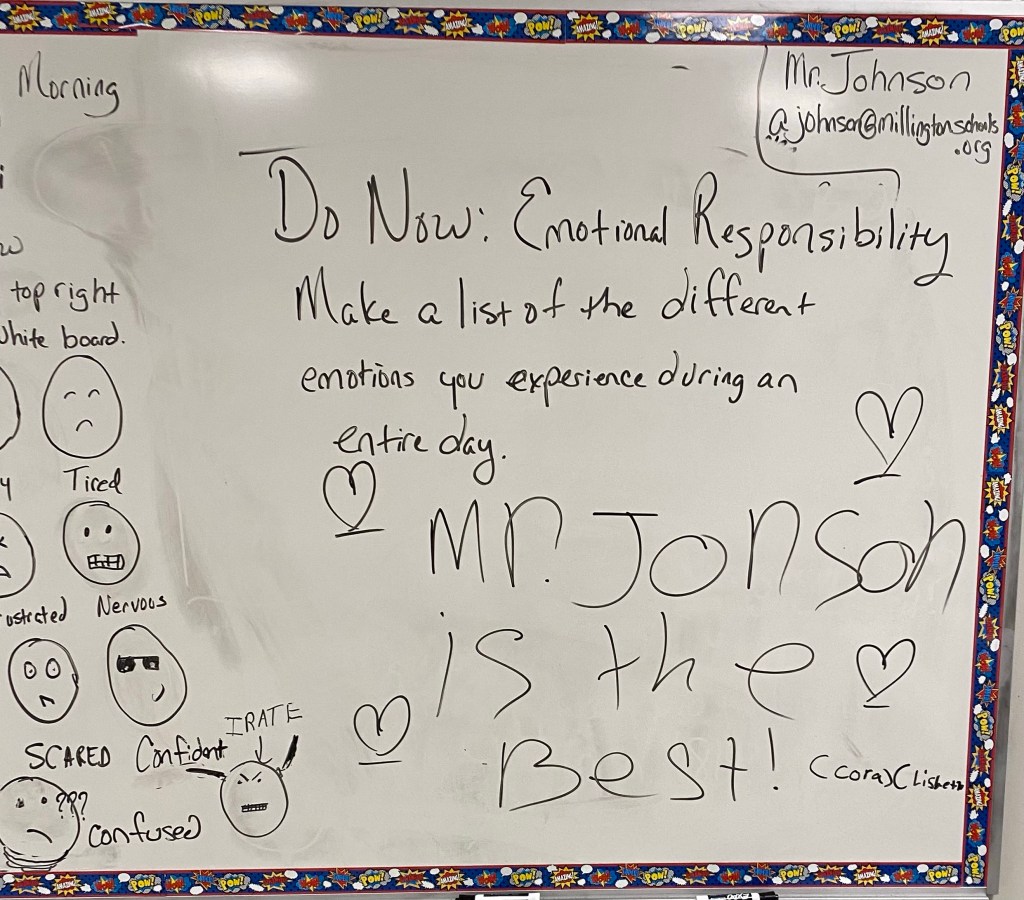 Morning
Mr. Johnson
ajohnson@millingtonschools
.org
Do Now: Emotional Responsibility
Make a list of the different
emotions you experience during an
entire day.
top right
white board.
Tired
Nervous
SCARED Confident
IRATE
???
confused
Mr. Jonson
is the
Best! (cora)(Lisbeth
POW! AMAZING